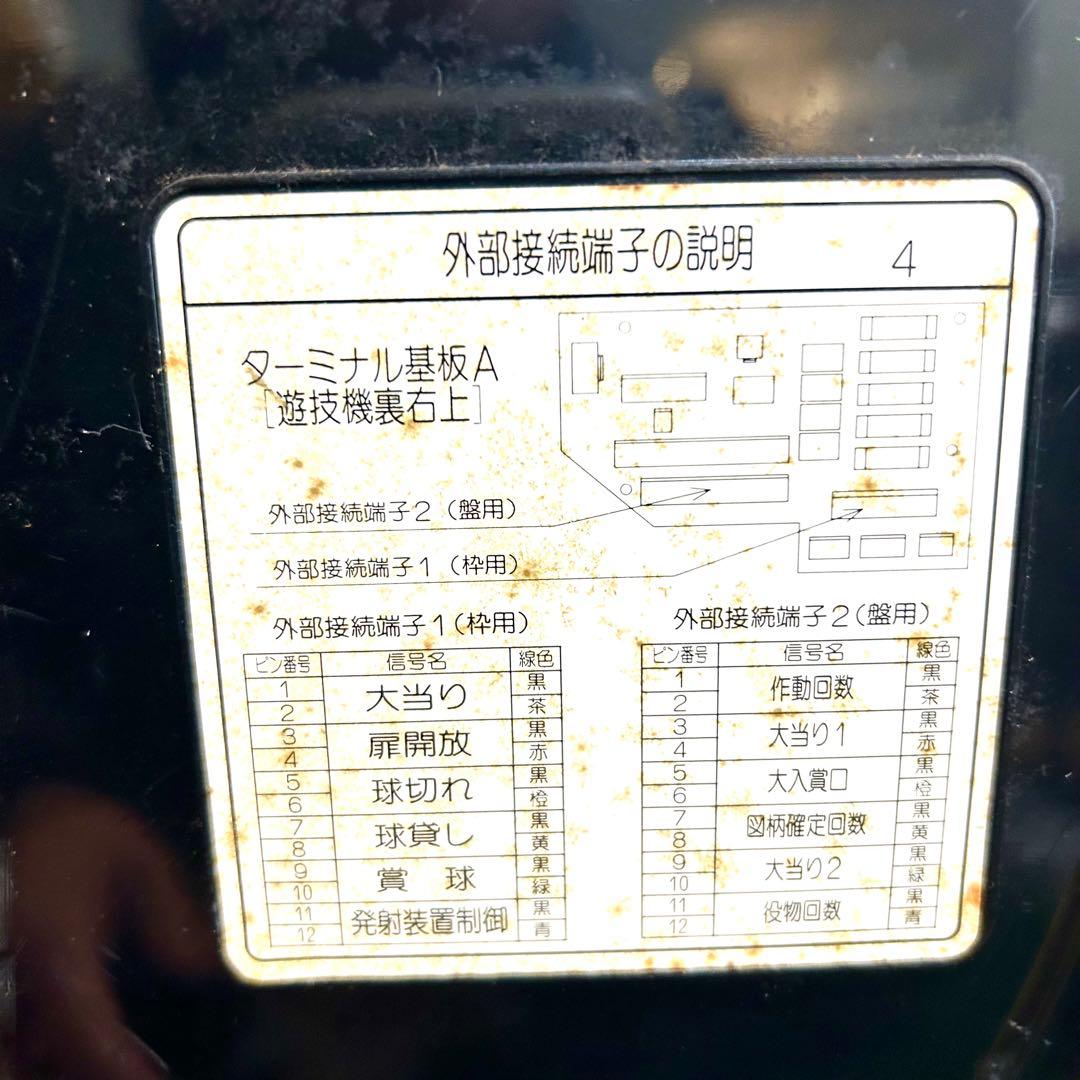 外部接続端子の説明 4
ターミナル基板A
[遊技機裏右上]
外部接続端子2（盤用）
外部接続端子1（枠用）
外部接続端子1（枠用）
ピン番号 信号名 線色
1 大当り 黒
2 茶
3 扉開放 黒
4 赤
5 球切れ 黒
6 橙
7 球貸し 黒
8 黄
9 賞 球 黒
10 緑
11 発射装置制御 黒
12 青
外部接続端子2（盤用）
ピン番号 信号名 線色
1 作動回数 黒
2 茶
3 大当り1 黒
4 赤
5 大入賞口 黒
6 橙
7 図柄確定回数 黒
8 黄
9 大当り2 黒
10 緑
11 役物回数 黒
12 青